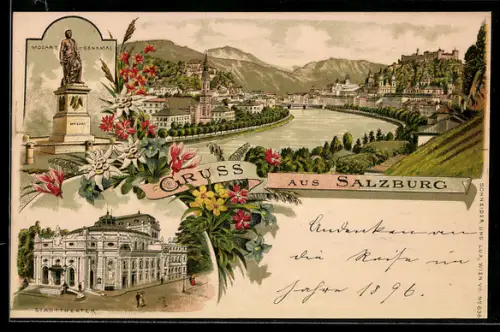 MOZART-DENKMAL
MOZART
GRUSS
AUS SALZBURG
STADTTHEATER
Andenken an
die Reise im
Jahre 1896.
SCHNEIDER UND LUX, WIEN VII. No 636